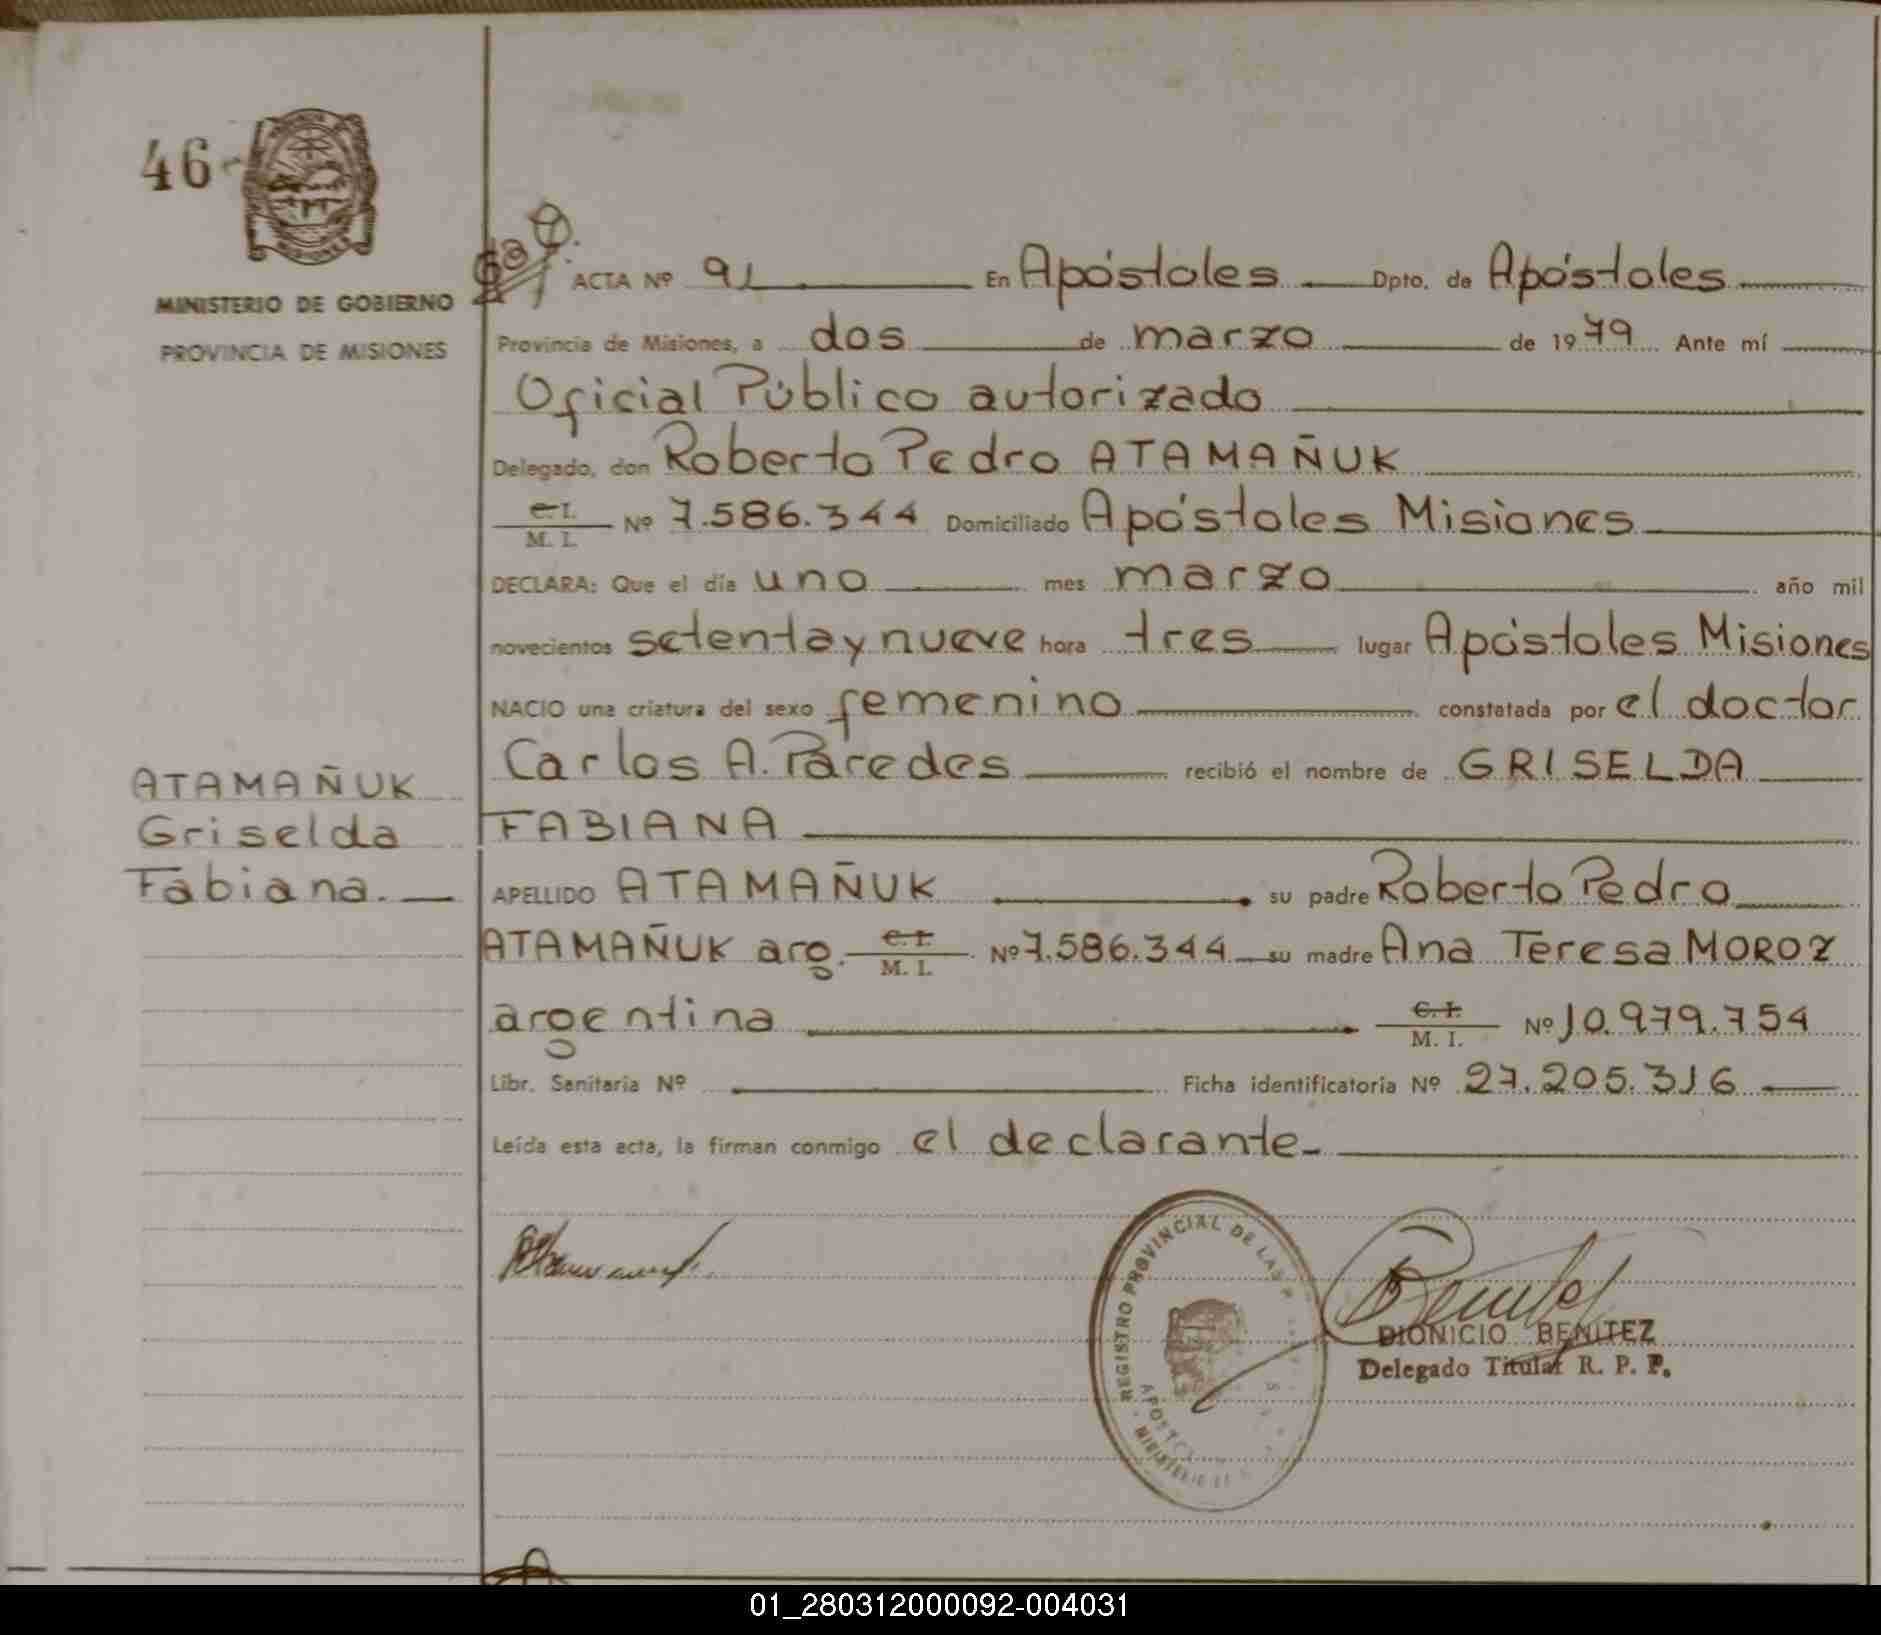 46
MINISTERIO DE GOBIERNO
PROVINCIA DE MISIONES
ACTA Nº 91 En Apóstoles Dpto. de Apóstoles
Provincia de Misiones, a dos de marzo de 1979 Ante mí
Oficial Público autorizado
Delegado, don Roberto Pedro ATAMAÑUK
C. I.
M. I. Nº 7.586.344 Domiciliado Apóstoles Misiones
DECLARA: Que el día uno mes marzo año mil
novecientos setenta y nueve hora tres lugar Apóstoles Misiones
NACIO una criatura del sexo femenino constatada por el doctor
Carlos A. Paredes recibió el nombre de GRISELDA
FABIANA
ATAMAÑUK
Griselda
Fabiana.
APELLIDO ATAMAÑUK su padre Roberto Pedro
ATAMAÑUK arg. C. I.
M. I. Nº 7.586.344 su madre Ana Teresa MOROZ
argentina C. I.
M. I. Nº 10.979.754
Libr. Sanitaria Nº Ficha identificatoria Nº 27.205.316
Leída esta acta, la firman conmigo el declarante.
REGISTRO PROVINCIAL DE LAS
DIONICIO BENITEZ
Delegado Titular R. P. P.
01_280312000092-004031